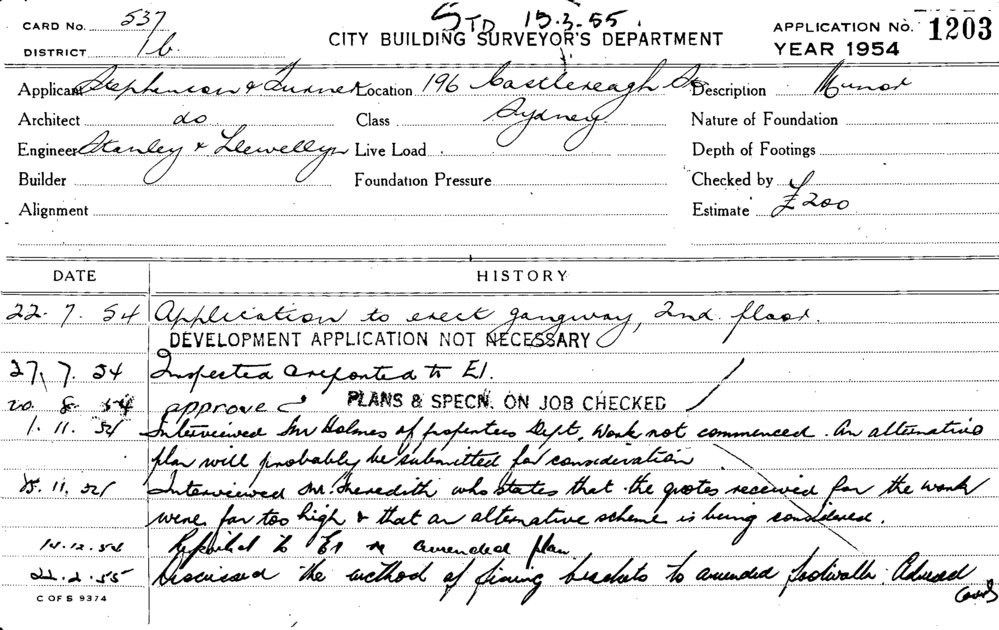 STD 15.3.55.
CARD No. 537
DISTRICT 1b.
CITY BUILDING SURVEYOR'S DEPARTMENT
APPLICATION No. 1203
YEAR 1954
Applicant Stephenson & Turner Location 196 Castlereagh St Description Minor
Architect do Class Sydney. Nature of Foundation
Engineer Stanley & Llewellyn Live Load Depth of Footings
Builder Foundation Pressure Checked by
Alignment Estimate £200
DATE HISTORY
22. 7. 54 Application to erect gangway, 2nd. floor.
DEVELOPMENT APPLICATION NOT NECESSARY
27. 7. 54 Inspected & reported to E1.
20. 8. 54 approved PLANS & SPECN. ON JOB CHECKED
1. 11. 54 Interviewed Mr Holmes of properties Dept. Work not commenced. An alternative
plan will probably be submitted for consideration
15. 11. 54 Interviewed Mr. Meredith who states that the quotes received for the work
were far too high & that an alternative scheme is being considered.
14.12.54 Reported to E1 re amended plan
22.2.55 Discussed the method of fixing brackets to amended footwalk. Advised
C OF S 9374